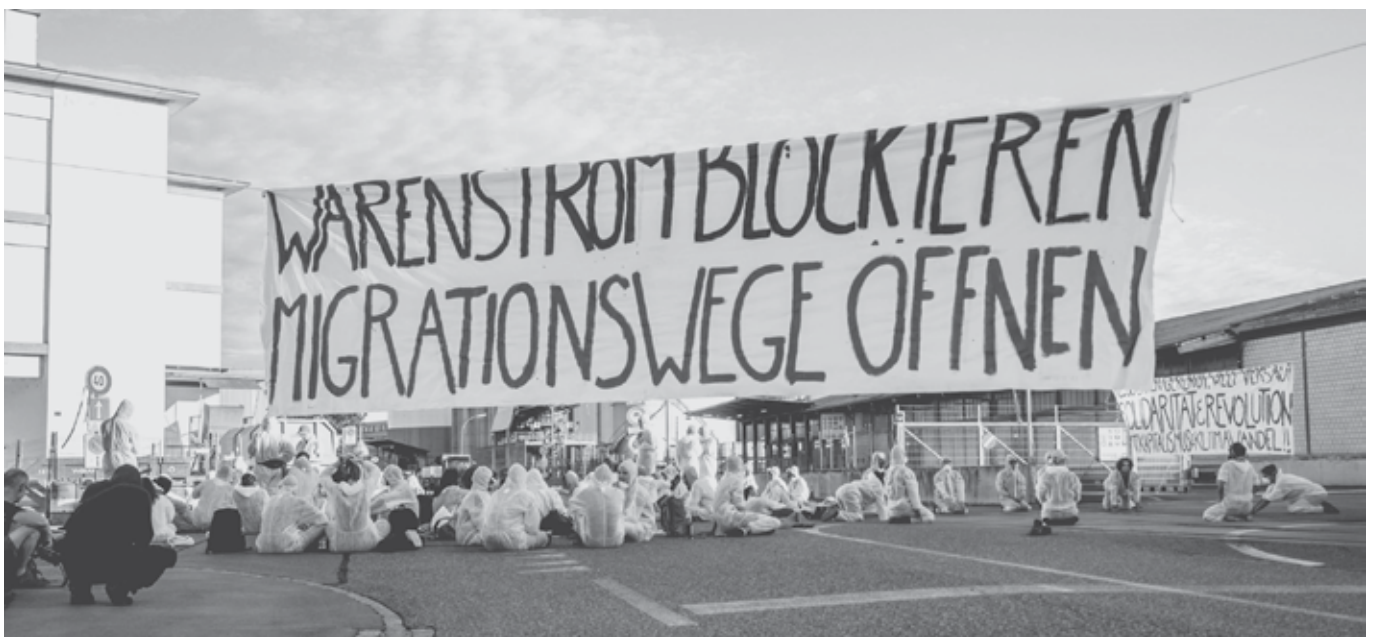 WARENSTROM BLOCKIEREN
MIGRATIONSWEGE ÖFFNEN
40
SOLIDARITÄT & REVOLUTION